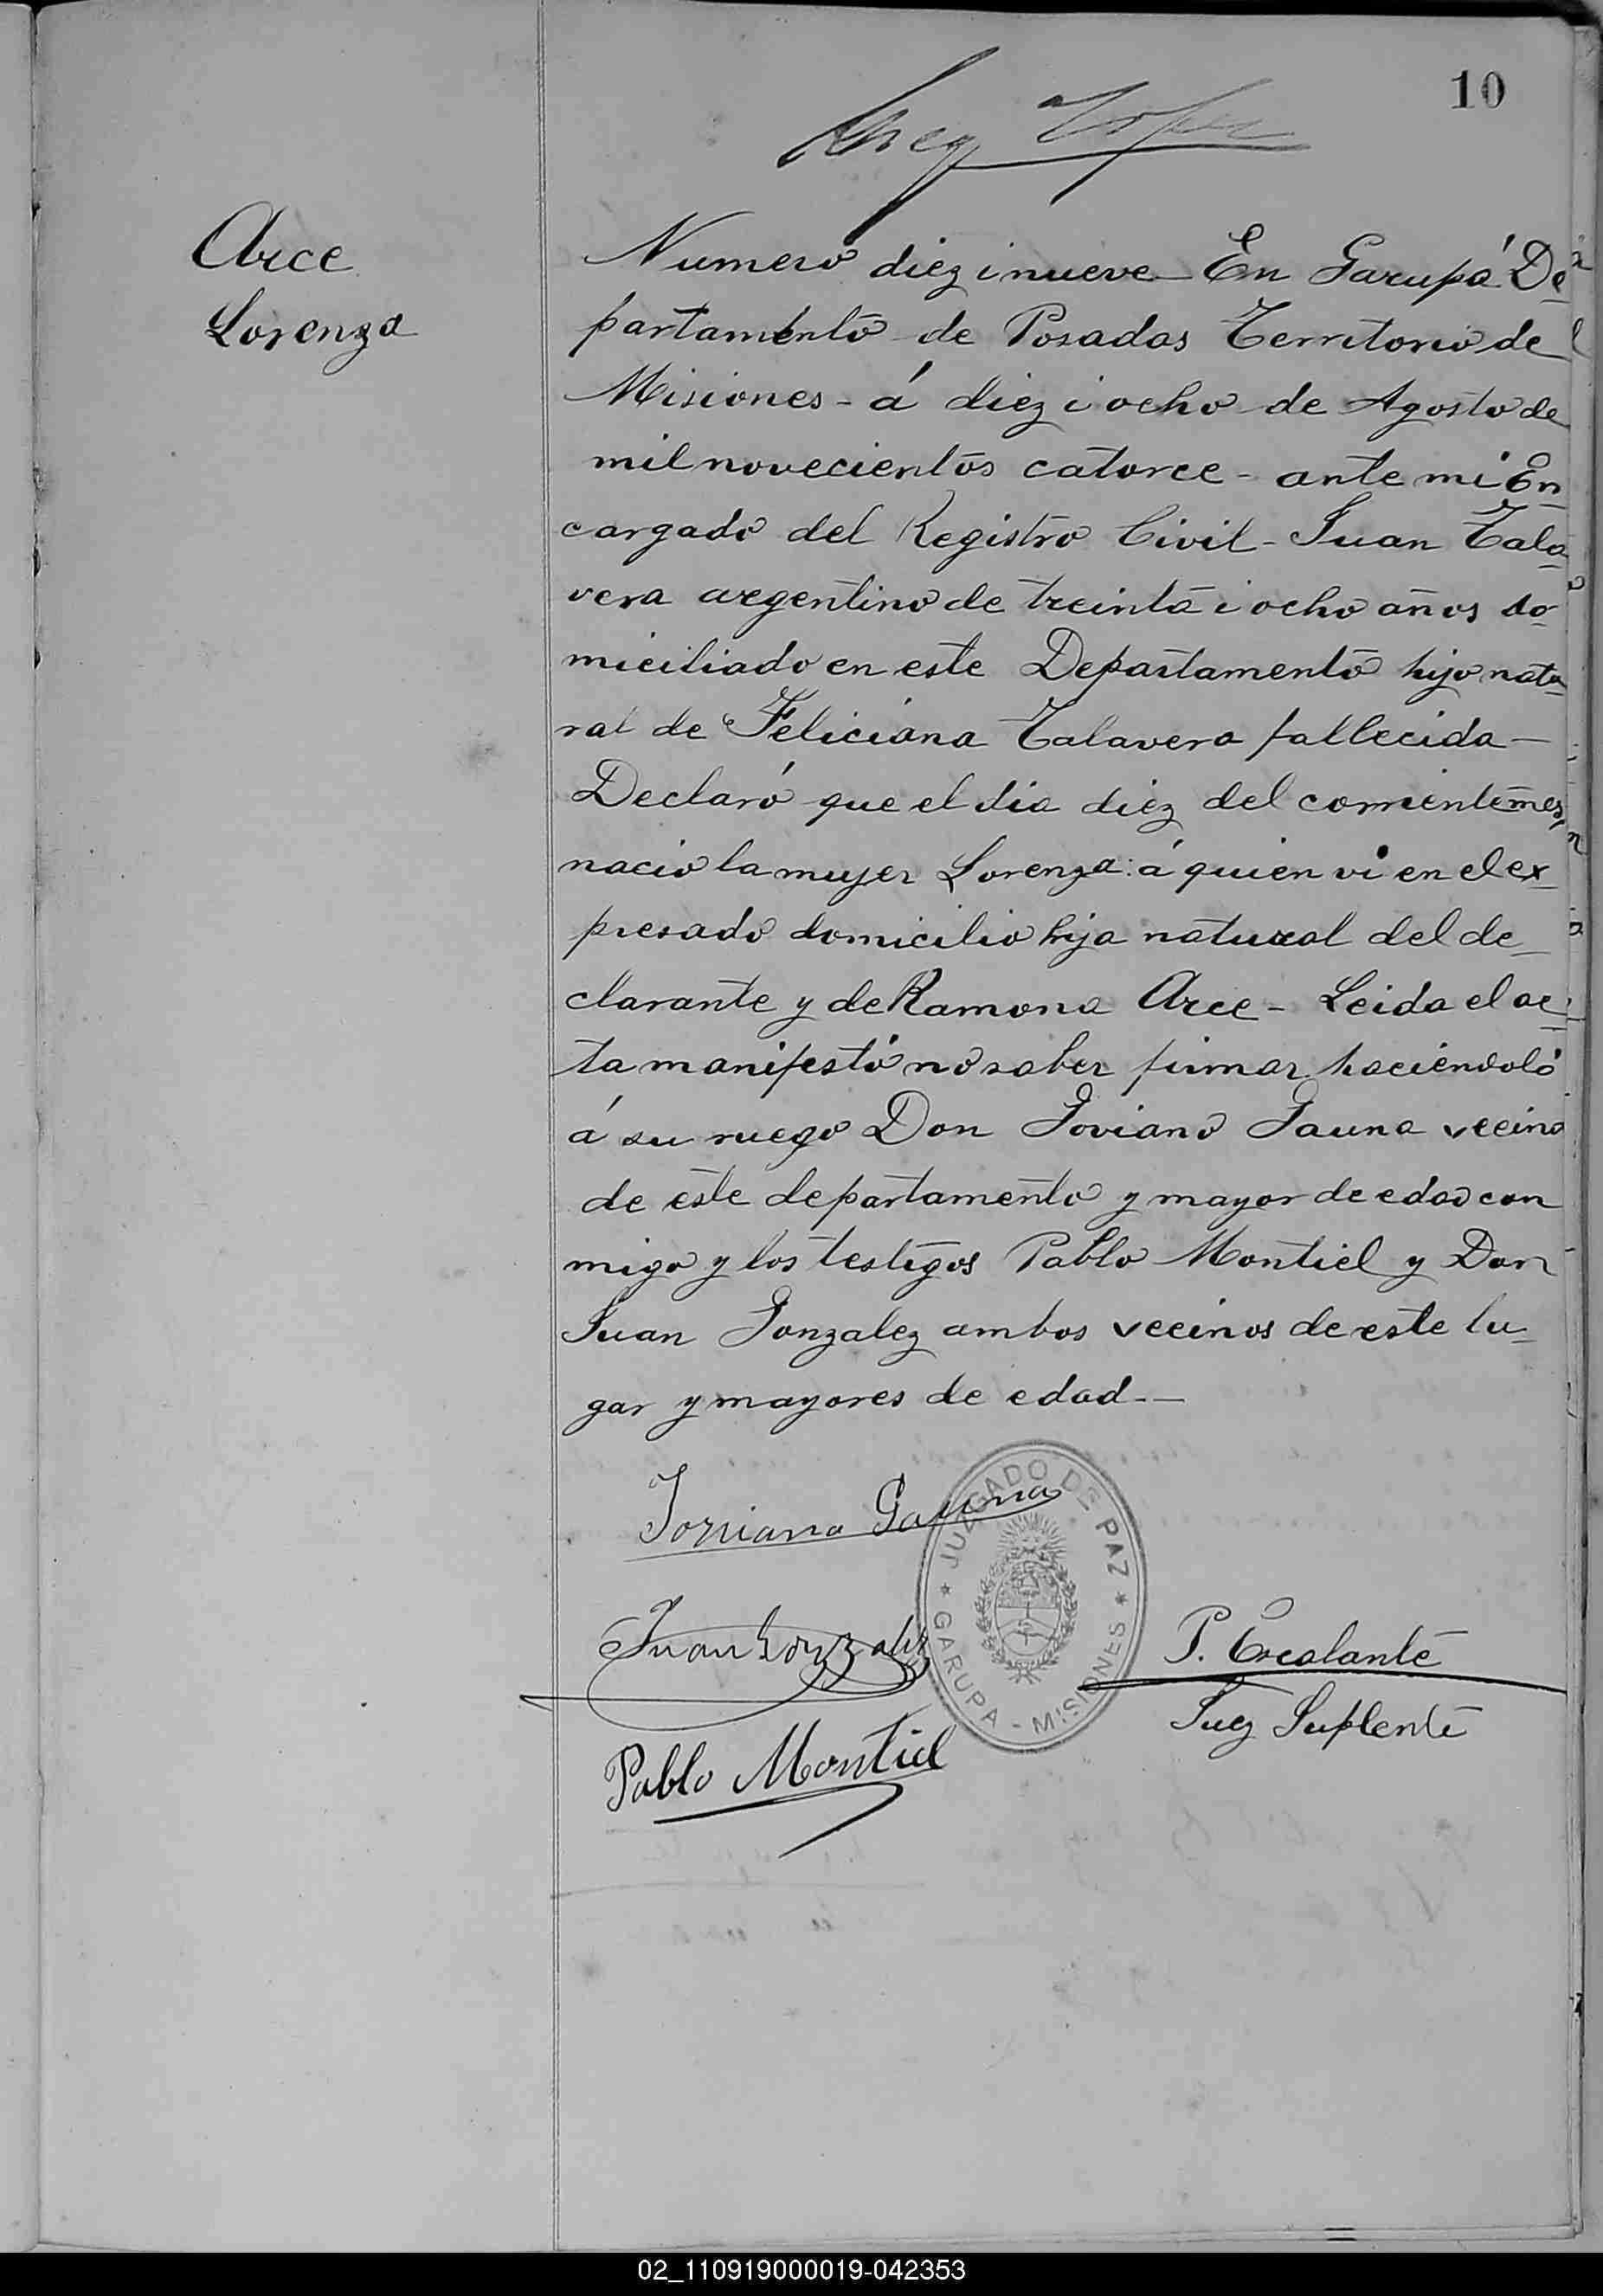 10
Arce
Lorenza
Numero diez i nueve En Garupá De
partamento de Posadas Territorio de
Misiones - á diez i ocho de Agosto de
mil novecientos catorce - ante mi En
cargado del Registro Civil - Juan Tala
vera argentino de treinta i ocho años do
miciliado en este Departamento hijo natu
ral de Feliciana Talavera fallecida -
Declaró que el dia diez del corriente mes,
nacio la mujer Lorenza: á quien vi en el ex
presado domicilio hija natural del de
clarante y de Ramona Arce - Leida el ac
ta manifestó no saber firmar haciéndoló
á su ruego Don Joviano Gauna vecino
de este departamento y mayor de edad con
migo y los testigos Pablo Montiel y Don
Juan Gonzalez ambos vecinos de este lu
gar y mayores de edad. -
Gauna
JUZGADO DE PAZ
GARUPA - MISIONES
Juan Gonzalez
P. Escalante
Juez Suplente
Pablo Montiel
02_110919000019-042353